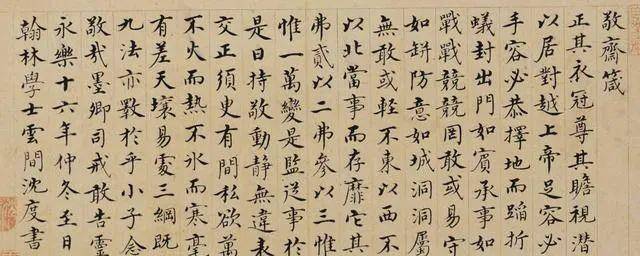 敬齋箴
正其衣冠尊其瞻視潛
以居對越上帝足容必
手容必恭擇地而蹈折
蟻封出門如賓承事如
戰戰兢兢罔敢或易守
如缾防意如城洞洞屬
無敢或輕不東以西不
以北當事而存靡它其
弗貳以二弗參以三惟
惟一萬變是監從事於
是曰持敬動靜無違表
交正須臾有間私欲萬
不火而熱不冰而寒毫
有差天壤易處三綱既
九法亦斁於乎小子念
敬哉墨卿司戒敢告靈
永樂十六年仲冬至日
翰林學士雲間沈度書